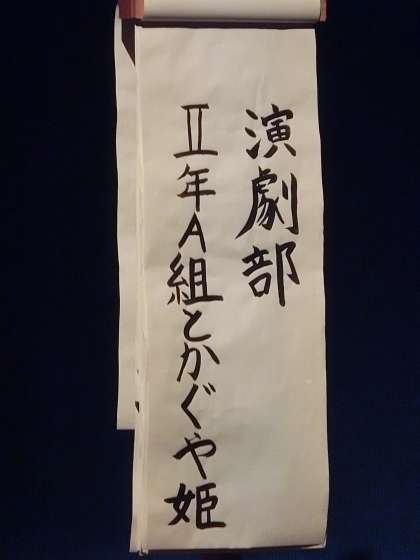 演劇部
Ⅱ年A組とかぐや姫